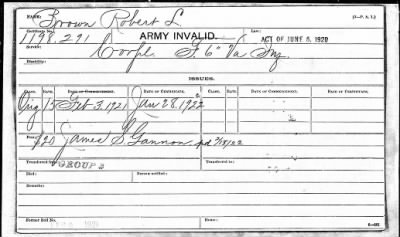 NAME: Brown Robert L. (3-P. & I.)
Certificate No.: ARMY INVALID. Law:
1198.291 ACT OF JUNE 5, 1920
Service: Corpl F. 6" Va Inf
Disability:
ISSUES.
CLASS. RATE. DATE OF COMMENCEMENT. DATE OF CERTIFICATE. CLASS. RATE. DATE OF COMMENCEMENT. DATE OF CERTIFICATE.
Orig 15 Feb 3, 1921 Jan 28. 1922
$20 James S. Gannon, pd
Transferred Transferred to
GROUP 3
Died:
Remarks:
Former Roll No.